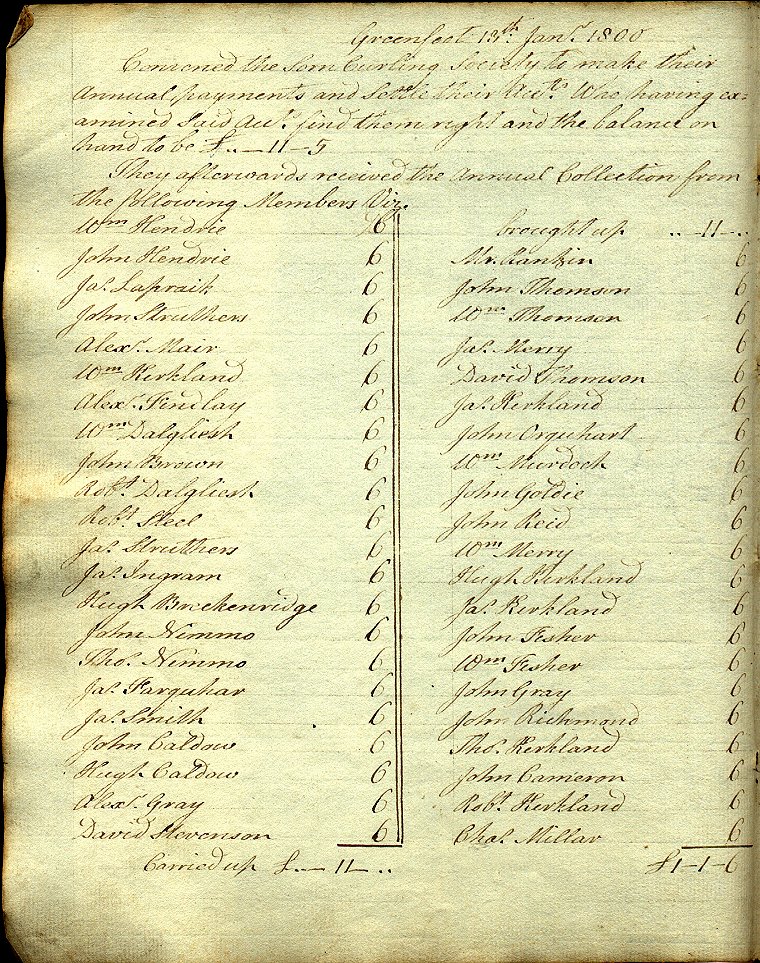 Greenfoot 13th. Janr. 1800
Conveened the Sorn Curling Society to make their
Annual payments and Settle their Accts. Who having ex=
amined Said Acct. find them right and the balance on
hand to be £..—11—5
They afterwards received the Annual Collection from
the following Members Viz.
Wm Hendrie 6
John Hendrie 6
Jas. Lapraik 6
John Struthers 6
Alexr. Mair 6
Wm Kirkland 6
Alexr. Findlay 6
Wm Dalgliesh 6
John Brown 6
Robt Dalgliesh 6
Robt. Steel 6
Jas. Struthers 6
Jas. Ingram 6
Hugh Breckenridge 6
John Nimmo 6
Thos. Nimmo 6
Jas. Farquhar 6
Jas. Smith 6
John Caldow 6
Hugh Caldow 6
Alexr. Gray 6
David Stevenson 6
Carried up £..—11—..
brought up ..—11—..
Mr. Rankin 6
John Thomson 6
Wm Thomson 6
Jas. Merry 6
David Thomson 6
Jas. Kirkland 6
John Orquhart 6
Wm Murdoch 6
John Goldie 6
John Reid 6
Wm Merry 6
Hugh Kirkland 6
Jas. Kirkland 6
John Fisher 6
Wm Fisher 6
John Gray 6
John Richmond 6
Thos. Kirkland 6
John Cameron 6
Robt Kirkland 6
Chas. Millar 6
£1—1—6